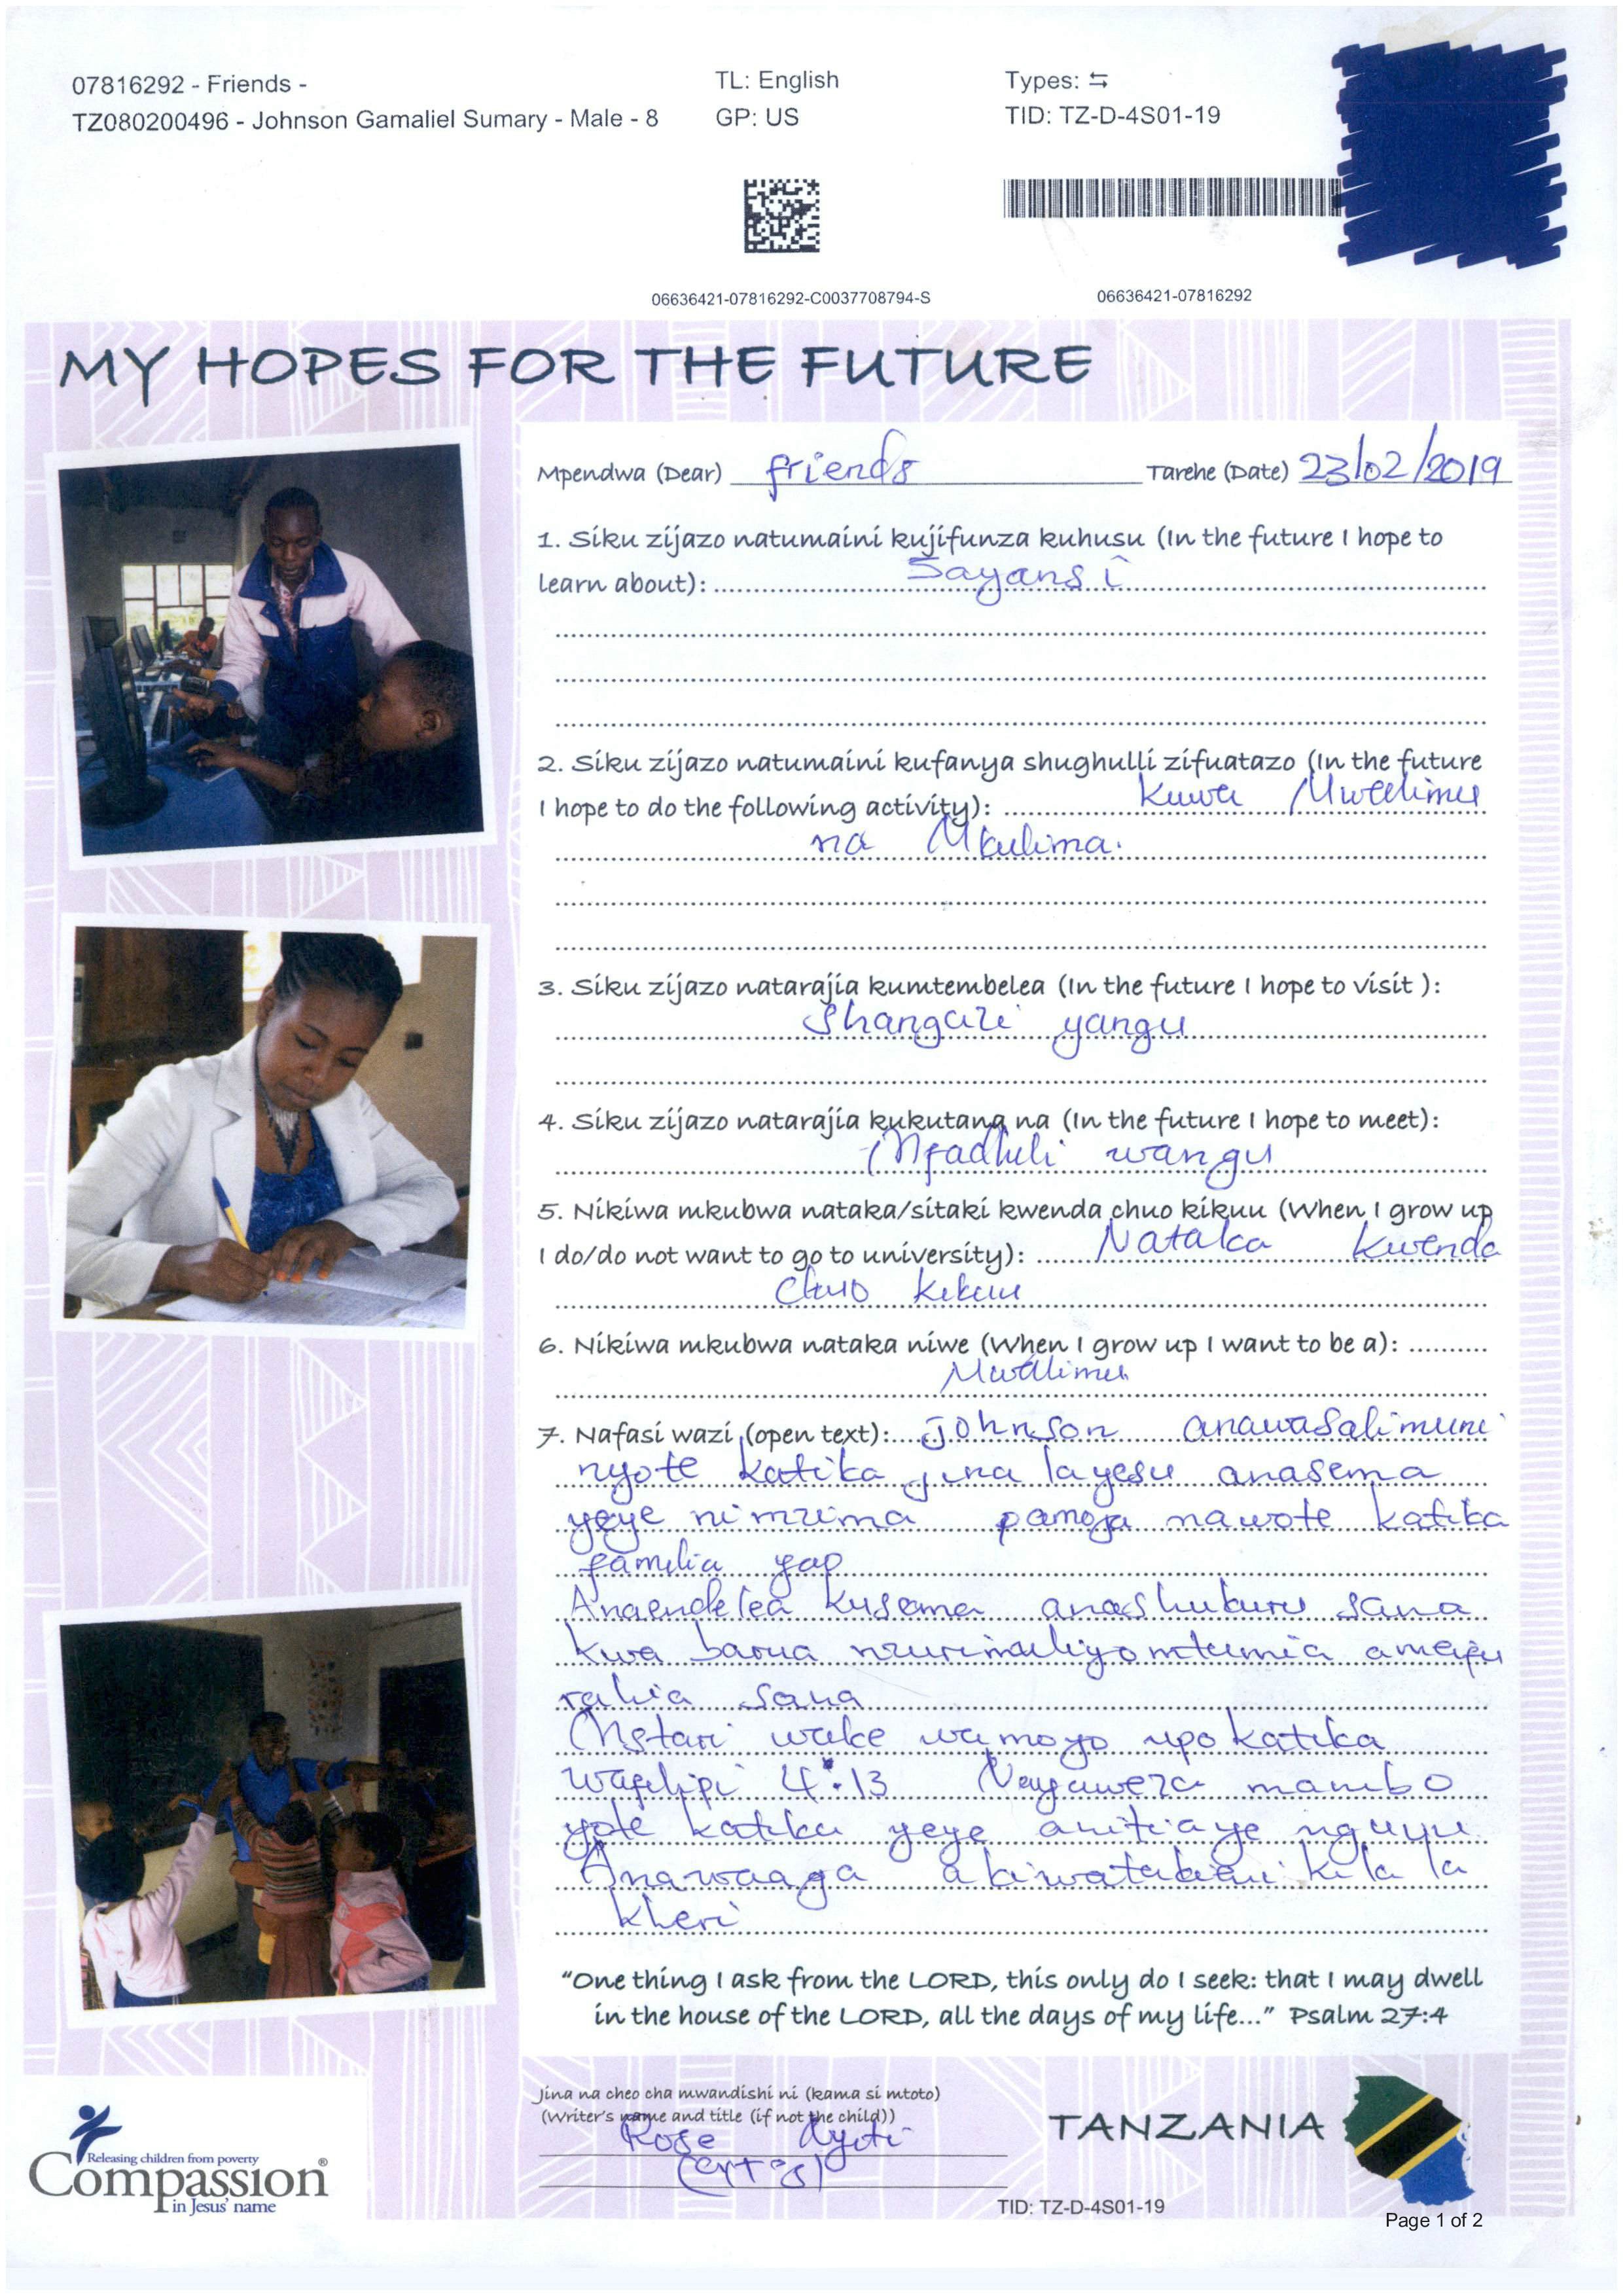 07816292 - Friends -
TZ080200496 - Johnson Gamaliel Sumary - Male - 8
TL: English
GP: US
Types: ⇆
TID: TZ-D-4S01-19
06636421-07816292-C0037708794-S
06636421-07816292
MY HOPES FOR THE FUTURE
Mpendwa (Dear) friends Tarehe (Date) 23/02/2019
1. Siku zijazo natumaini kujifunza kuhusu (In the future I hope to
learn about): Sayansi
2. Siku zijazo natumaini kufanya shughulli zifuatazo (In the future
I hope to do the following activity): Kuwa Mwalimu
na Mkulima.
3. Siku zijazo natarajia kumtembelea (In the future I hope to visit ):
Shangazi yangu
4. Siku zijazo natarajia kukutana na (In the future I hope to meet):
Mfadhili wangu
5. Nikiwa mkubwa nataka/sitaki kwenda chuo kikuu (When I grow up
I do/do not want to go to university): Nataka Kwenda
Chuo Kikuu
6. Nikiwa mkubwa nataka niwe (When I grow up I want to be a):
Mwalimu
7. Nafasi wazi (open text): Johnson anawasalimuni
nyote katika jina layesu anasema
yeye nimzima pamoja nawote katika
familia yao
Anaendelea kusema anashukuru sana
kwa barua nzurimuliyomtumia amefu
rahia sana
Mstari wake wamoyo upo katika
Wafilipi 4:13 Nayaweza mambo
yote katika yeye anitiaye nguvu
Anawaaga akiwatakieni kila la
kheri
"One thing I ask from the LORD, this only do I seek: that I may dwell
in the house of the LORD, all the days of my life..." Psalm 27:4
Jina na cheo cha mwandishi ni (kama si mtoto)
(Writer's name and title (if not the child))
Rose
TANZANIA
Releasing children from poverty
Compassion®
in Jesus' name
TID: TZ-D-4S01-19
Page 1 of 2